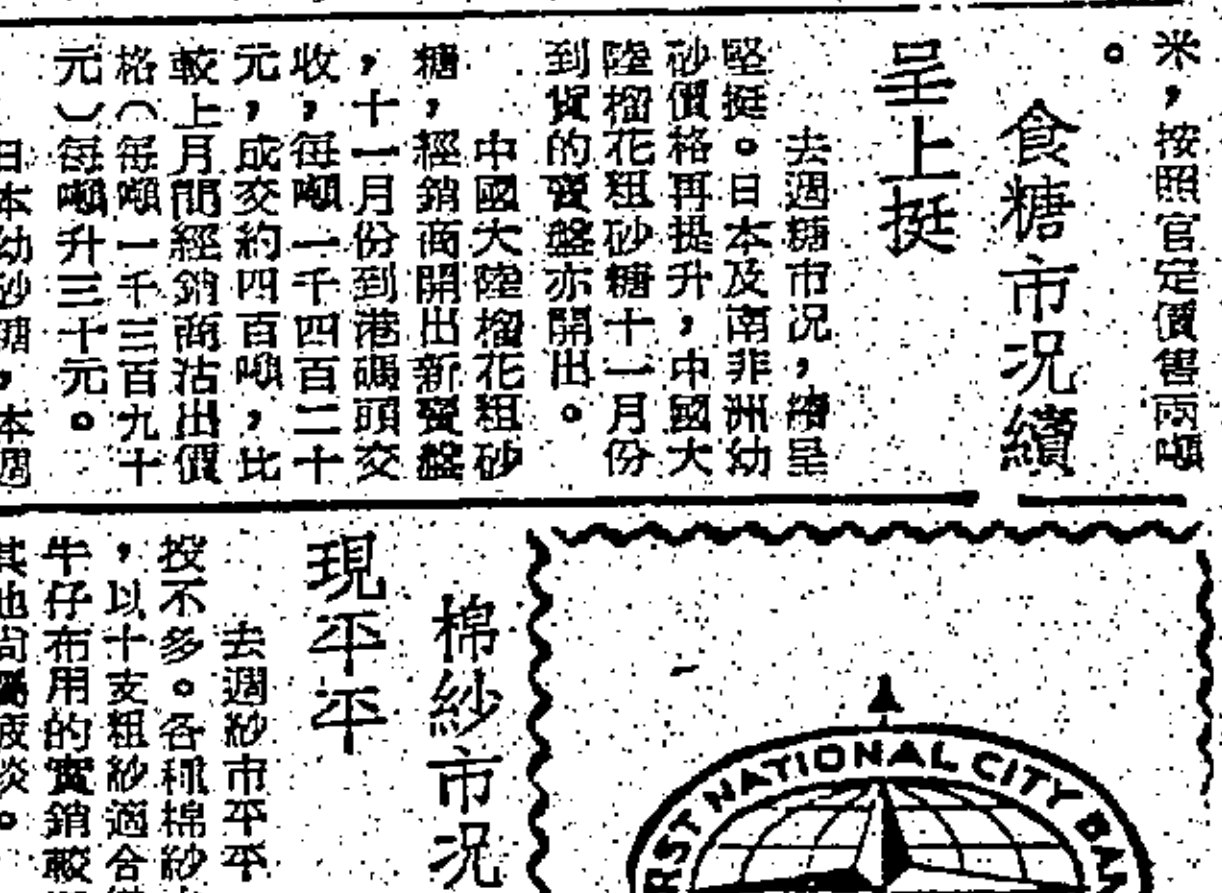 米，按照官定價售兩噸
。
食糖市況續
呈上挺
去週糖市況，續呈
堅挺。日本及南非洲幼
砂價格再提升，中國大
陸榴花粗砂糖十一月份
到貨的賣盤亦開出。
中國大陸榴花粗砂
糖，經銷商開出新賣盤
，十一月份到港碼頭交
收，每噸一千四百二十
元，成交約四百噸，比
較上月間經銷商沽出價
格（每噸一千三百九十
元）每噸升三十元。
日本幼砂糖，本週
棉紗市況
現平平
去週紗市平平
投不多。各種棉紗
，以十支粗紗適合
牛仔布用的實銷較
其他尚屬疲淡。
FIRST NATIONAL CITY BAN